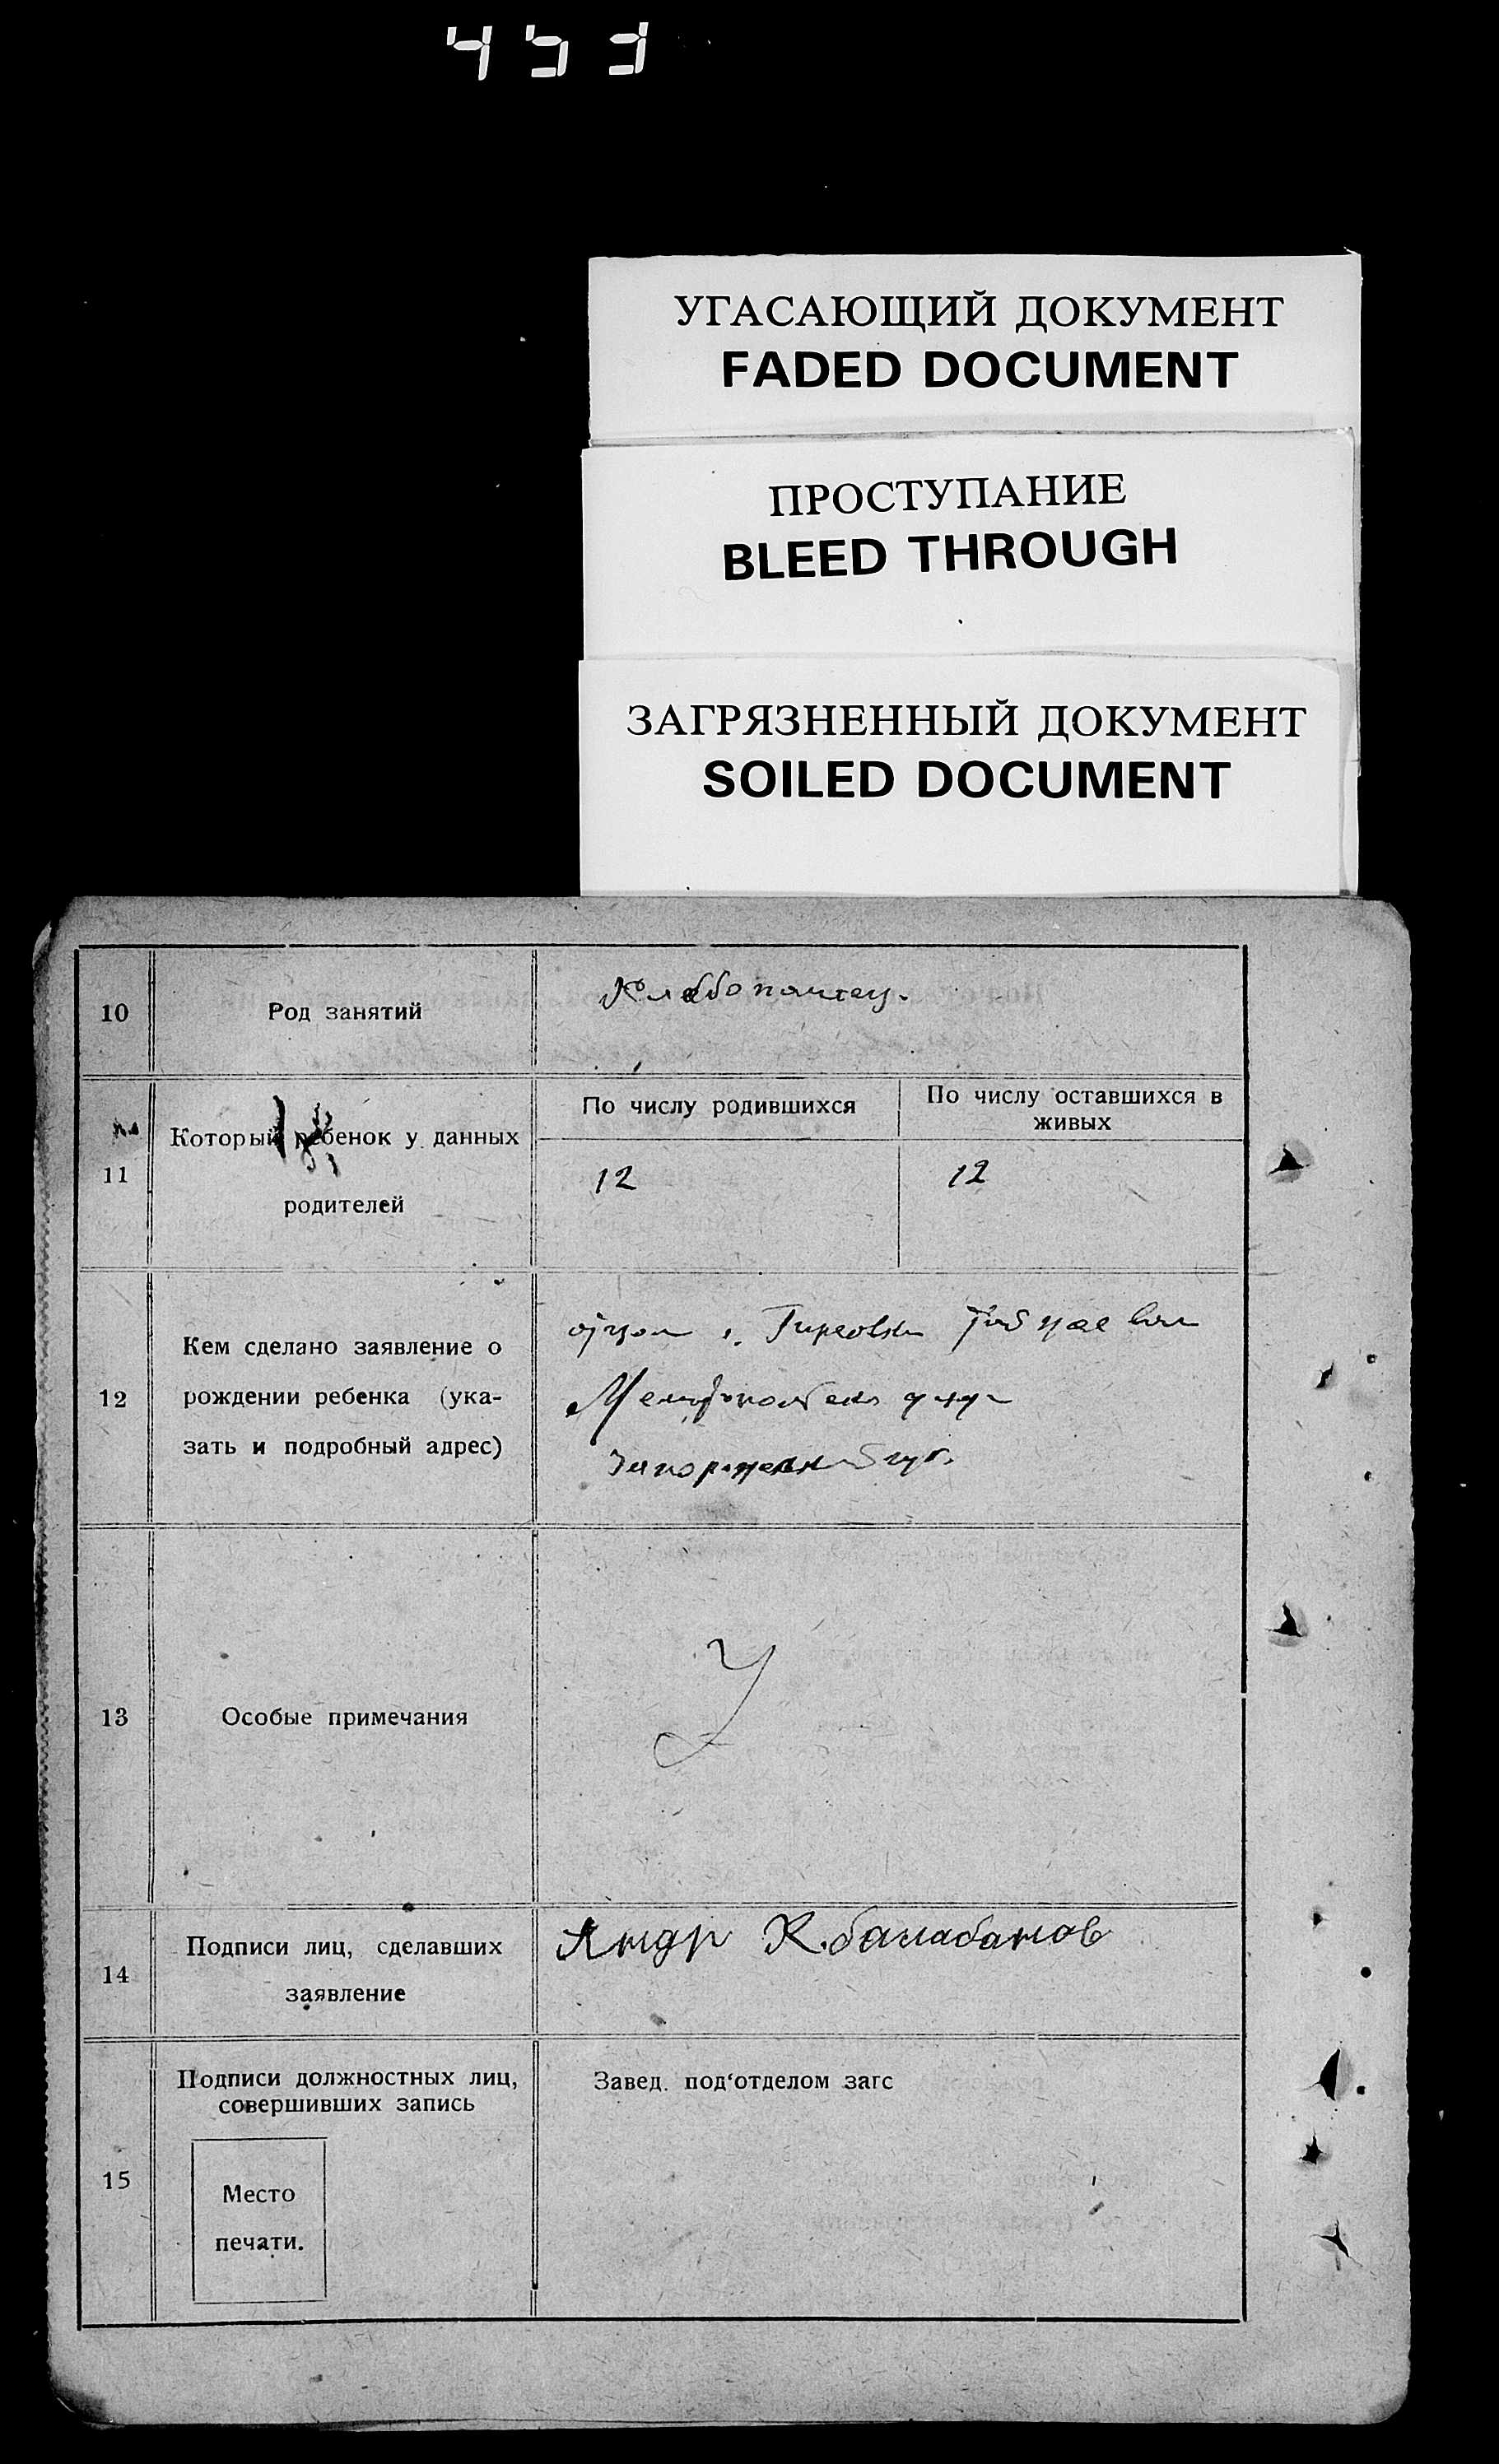 453
УГАСАЮЩИЙ ДОКУМЕНТ
FADED DOCUMENT
ПРОСТУПАНИЕ
BLEED THROUGH
ЗАГРЯЗНЕННЫЙ ДОКУМЕНТ
SOILED DOCUMENT
10
Род занятий
Хлебопашец.
11
Который ребенок у данных
родителей
По числу родившихся
12
По числу оставшихся в
живых
12
12
Кем сделано заявление о
рождении ребенка (ука-
зать и подробный адрес)
отцом с. Гирсовка
13
Особые примечания
14
Подписи лиц, сделавших
заявление
К. балабанов
15
Подписи должностных лиц,
совершивших запись
Место
печати.
Завед. под‘отделом загс